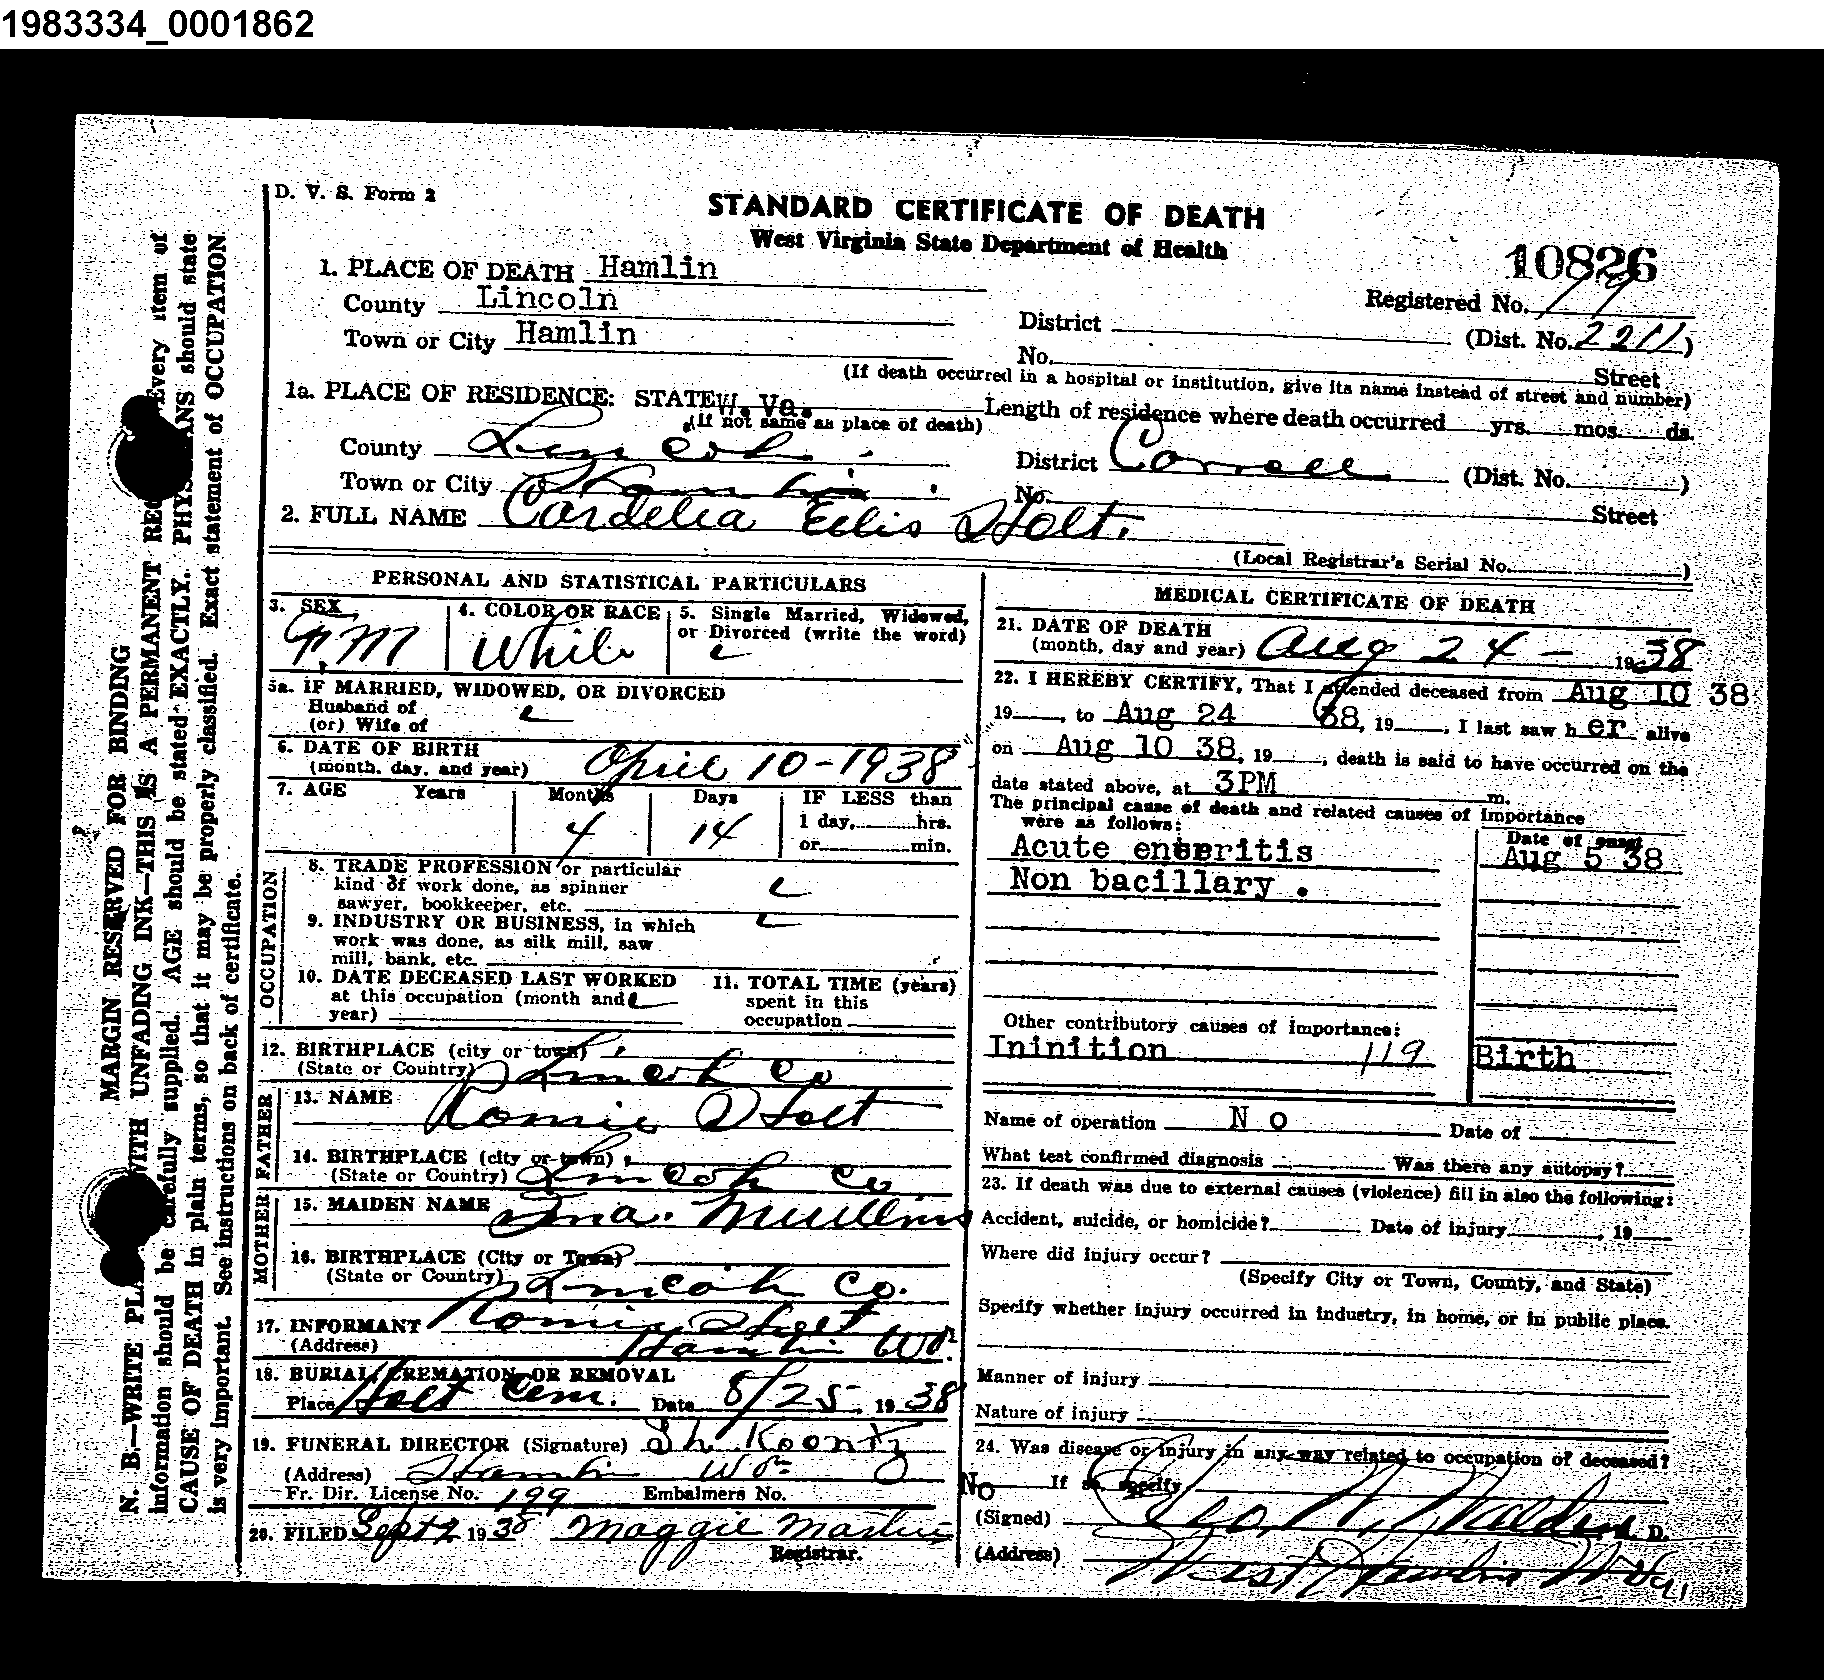 1983334_0001862
D. V. S. Form 2
STANDARD CERTIFICATE OF DEATH
West Virginia State Department of Health
10826
1. PLACE OF DEATH Hamlin
Registered No. 79
County Lincoln
District (Dist. No. 2211)
Town or City Hamlin
No. Street
(If death occurred in a hospital or institution, give its name instead of street and number)
1a. PLACE OF RESIDENCE: STATE W. Va.
(If not same as place of death)
Length of residence where death occurred yrs. mos. ds.
County Lincoln
District Carroll (Dist. No. )
Town or City Hamlin
No. Street
2. FULL NAME Cordelia Ellis Holt.
(Local Registrar's Serial No. )
PERSONAL AND STATISTICAL PARTICULARS
3. SEX
4. COLOR OR RACE White
5. Single Married, Widowed,
or Divorced (write the word)
5a. IF MARRIED, WIDOWED, OR DIVORCED
Husband of
(or) Wife of
6. DATE OF BIRTH
(month, day, and year) April 10-1938
7. AGE Years Months Days IF LESS than
4 14 1 day, hrs.
or min.
OCCUPATION
8. TRADE PROFESSION or particular
kind of work done, as spinner
sawyer, bookkeeper, etc.
9. INDUSTRY OR BUSINESS, in which
work was done, as silk mill, saw
mill, bank, etc.
10. DATE DECEASED LAST WORKED
at this occupation (month and
year)
11. TOTAL TIME (years)
spent in this
occupation
12. BIRTHPLACE (city or town)
(State or Country) Lincoln Co
FATHER
13. NAME Romie Holt
14. BIRTHPLACE (city or town)
(State or Country) Lincoln Co
MOTHER
15. MAIDEN NAME Ina. Mullins
16. BIRTHPLACE (City or Town)
(State or Country) Lincoln Co.
17. INFORMANT Romie Holt
(Address) Hamlin W.Va.
18. BURIAL, CREMATION, OR REMOVAL
Place Holt Cem. Date 8/25, 1938
19. FUNERAL DIRECTOR (Signature) Koontz
(Address) Hamlin W Va
Fr. Dir. License No. 199 Embalmers No.
20. FILED Sept 2 1938 Maggie Martin
Registrar.
MEDICAL CERTIFICATE OF DEATH
21. DATE OF DEATH
(month, day and year) Aug 24 - 1938
22. I HEREBY CERTIFY, That I attended deceased from Aug 10 38
19 , to Aug 24 38, 19 , I last saw her alive
on Aug 10 38, 19 , death is said to have occurred on the
date stated above, at 3PM m.
The principal cause of death and related causes of importance
were as follows:
Date of onset
Acute enteritis Aug 5 38
Non bacillary .
Other contributory causes of importance:
Ininition 119 Birth
Name of operation N O Date of
What test confirmed diagnosis Was there any autopsy?
23. If death was due to external causes (violence) fill in also the following:
Accident, suicide, or homicide? Date of injury , 19
Where did injury occur?
(Specify City or Town, County, and State)
Specify whether injury occurred in industry, in home, or in public place.
Manner of injury
Nature of injury
24. Was disease or injury in any way related to occupation of deceased?
No If so specify
(Signed) Geo. W. Walden D.
(Address) West Hamlin W Va.
MARGIN RESERVED FOR BINDING
N. B.—WRITE WITH UNFADING INK—THIS IS A PERMANENT Every item of
information should be carefully supplied. AGE should be stated EXACTLY. should state
CAUSE OF DEATH in plain terms, so that it may be properly classified. Exact statement of OCCUPATION
is very important. See instructions on back of certificate.